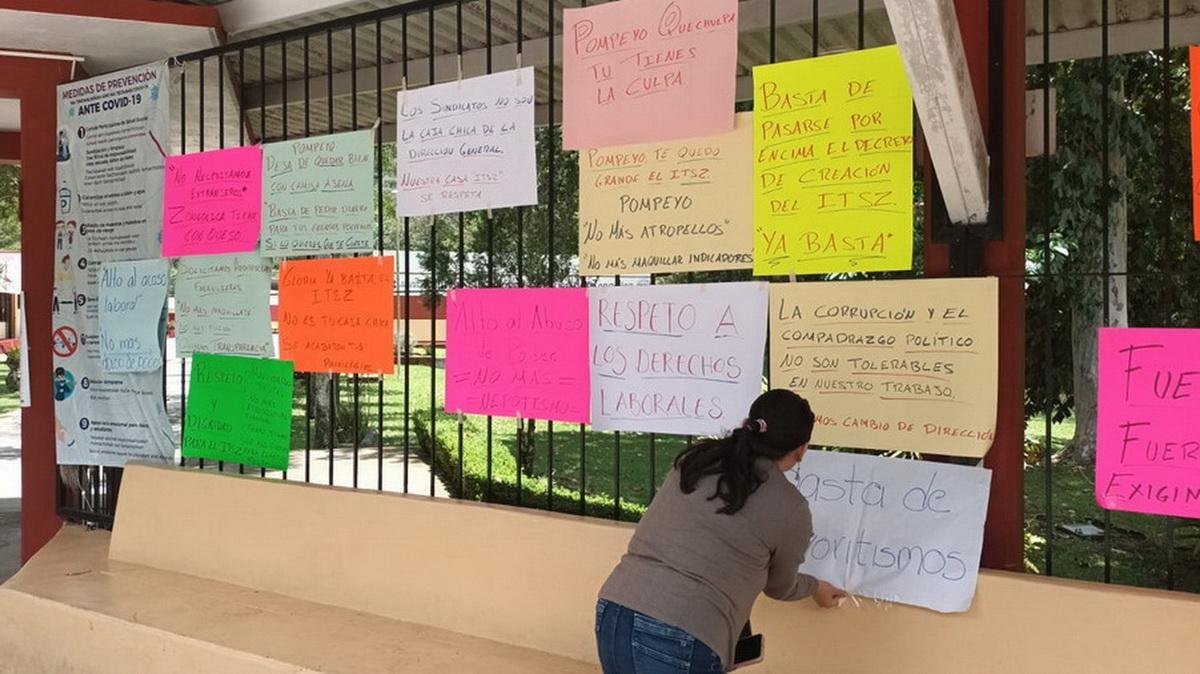 MEDIDAS DE PREVENCIÓN
ANTE COVID-19
"NO NECESITAMOS
EXTRANJEROS"
ZONGOLICA TIERRA
CON QUESO
POMPEYO
DEJA DE QUEDAR BIEN
CON CAMISA AJENA
"BASTA DE PEDIR DINERO
SI LO QUIERES QUE TE CUESTE
LOS SINDICATOS NO SON
LA CAJA CHICA DE LA
DIRECCIÓN GENERAL.
NUESTRA CASA "ITSZ"
SE RESPETA
POMPEYO QUECHULPA
TU TIENES
LA CULPA.
POMPEYO TE QUEDO
GRANDE EL ITSZ
POMPEYO
"NO MÁS ATROPELLOS"
"NO MÁS MAQUILLAR INDICADORES
BASTA DE
PASARSE POR
ENCIMA EL DECRETO
DE CREACIÓN
DEL ITSZ.
"YA BASTA"
Alto al acoso
laboral
No más
abuso de poder
SOLICITAMOS AUDITORIA
"NO MÁS MAQUILLAJE
TRANSPARENCIA
GLORIA YA BASTA EL
ITSZ
NO ES TU CAJA CHICA
SE ACABARON TUS
PRIVILEGIOS
RESPETO
Y
DIGNIDAD
PARA EL ITSZ
Alto al Abuso
de Poder
=NO MAS=
=NEPOTISMO=
RESPETO A
LOS DERECHOS
LABORALES.
LA CORRUPCIÓN Y EL
COMPADRAZGO POLÍTICO
NO SON TOLERABLES
EN NUESTRO TRABAJO.
MOS CAMBIO DE DIRECCIÓN
asta de
oritismos
FUE
FUER
EXIGIN